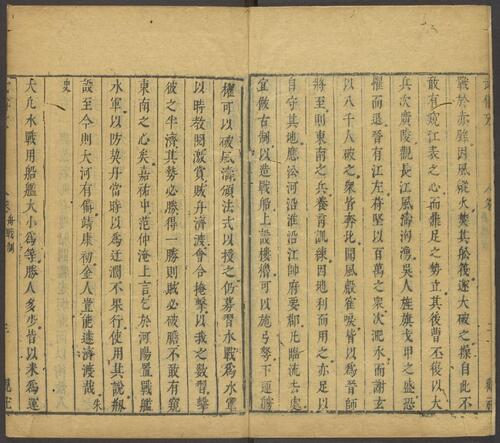 戰於赤壁因風縱火焚其船筏遂大破之操自此不
敢有窺江表之心而鼎足之勢立其後曹丕復以大
兵次廣陵觀長江風濤洶湧吳人旌旗戈甲之盛恐
懼而退晉有江左苻堅以百萬之衆次淝水而謝玄
以八千人破之衆皆奔北聞風聲鶴唳皆以爲晉師
將至則東南之兵養育訓練因地利而用之亦足以
自守其地應沿河沿淮沿江帥府要郡比臨流去處
宜倣古制以造戰船上設樓櫓可以施弓弩下運艣
櫂可以破風濤頒法式以授之仍募習水戰爲水軍
以時敎閱激賞賊舟濟渡會合掩擊以我之數習擊
彼之半濟其勢必勝得一勝則賊必破膽不敢有窺
東南之心矣嘉祐中范仲淹上言乞於河陽置戰艦
水軍以防契丹當時以爲迂濶不果行使用其說粗
設至今則大河有備靖康初金人豈能遽濟渡哉 朱
史
大凡水戰用船艦大小爲等勝人多少皆以米爲運